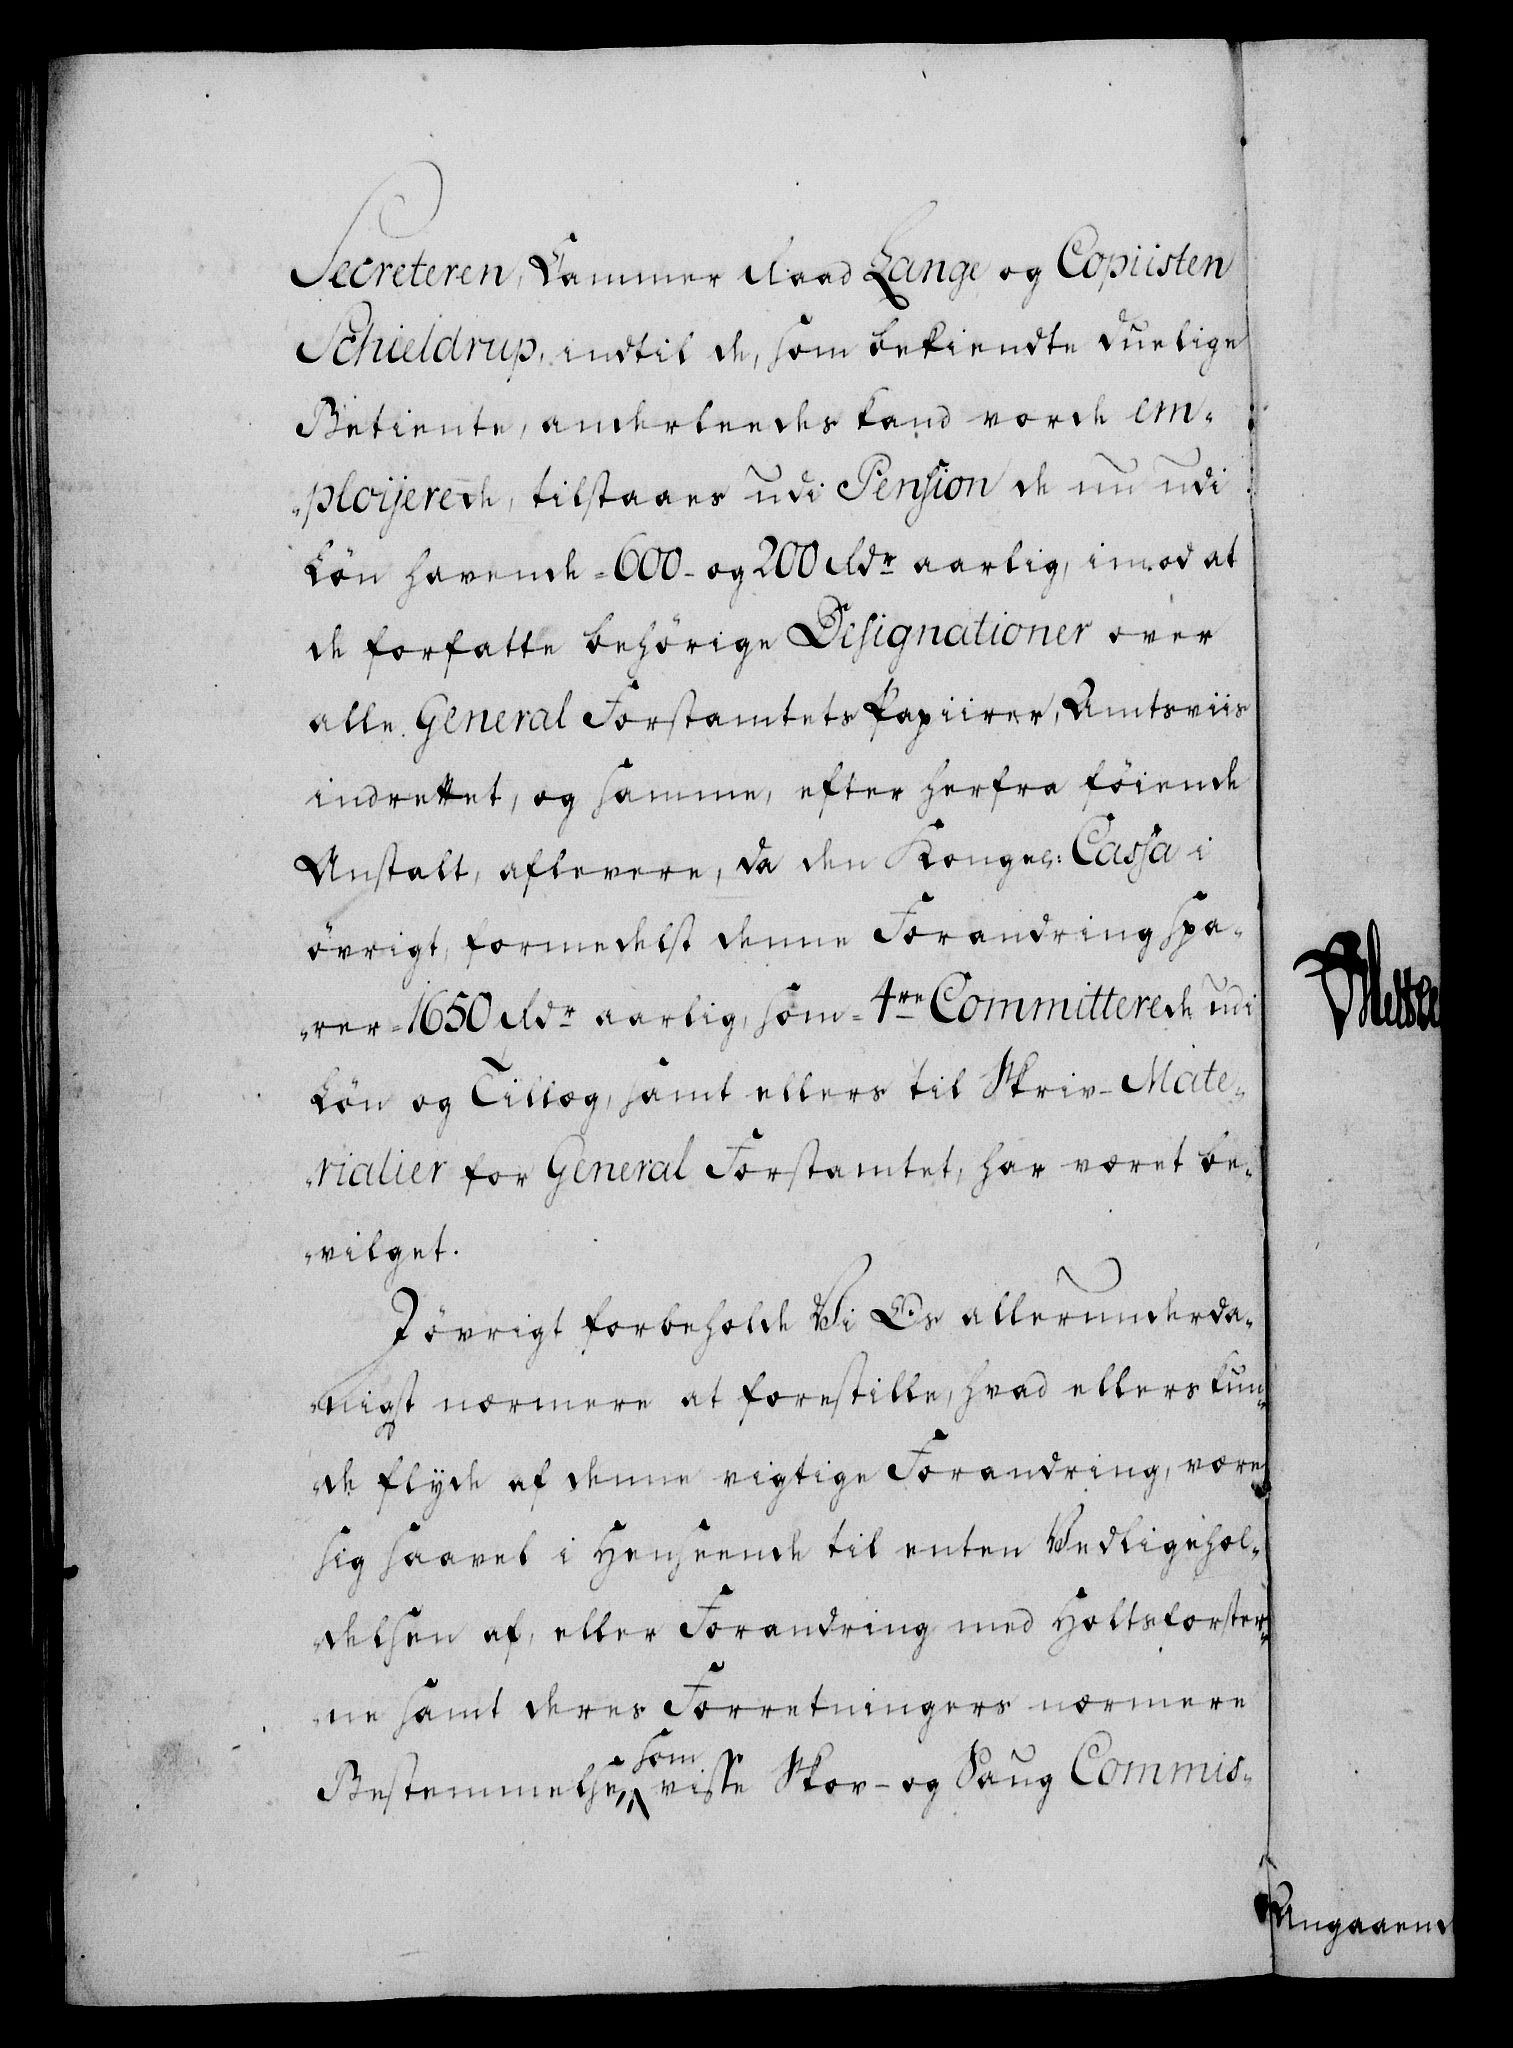 Secreteren, Kammer Raad Lange og Copiisten
Schieldrup, indtil de, som bekiendte duelige
Betiente, anderleedes kand vorde em-
-ploijerede, tilstaaes udi Pension de nu udi
Løn havende 600 og 200 Rdr aarlig, imod at
de forfatte behörige Designationer over
alle General Forstamtets Papiirer, Amtsviis
indrettet, og samme, efter herfra föiende
Anstalt, aflevere, da den Kongel: Cassa i
övrigt, formedelst denne Forandring spa-
-rer 1650 Rdr aarlig, som 4re Committerede udi
Løn og Tillæg, samt ellers til Skriv-Mate-
-rialier for General Forstamtet, har været be-
-vilget.
I övrigt forbeholde Vi Os allerunderda-
-nigst nærmere at forestille, hvad ellers kun-
-de flÿde af denne vigtige Forandring, være
sig saavel i Henseende til enten Vedligehol-
-delsen af, eller Forandring med Holtsforster-
-ne samt deres Forretningers nærmere
Bestemmelse, som visse Skov- og Saug Commis-
Angaaend